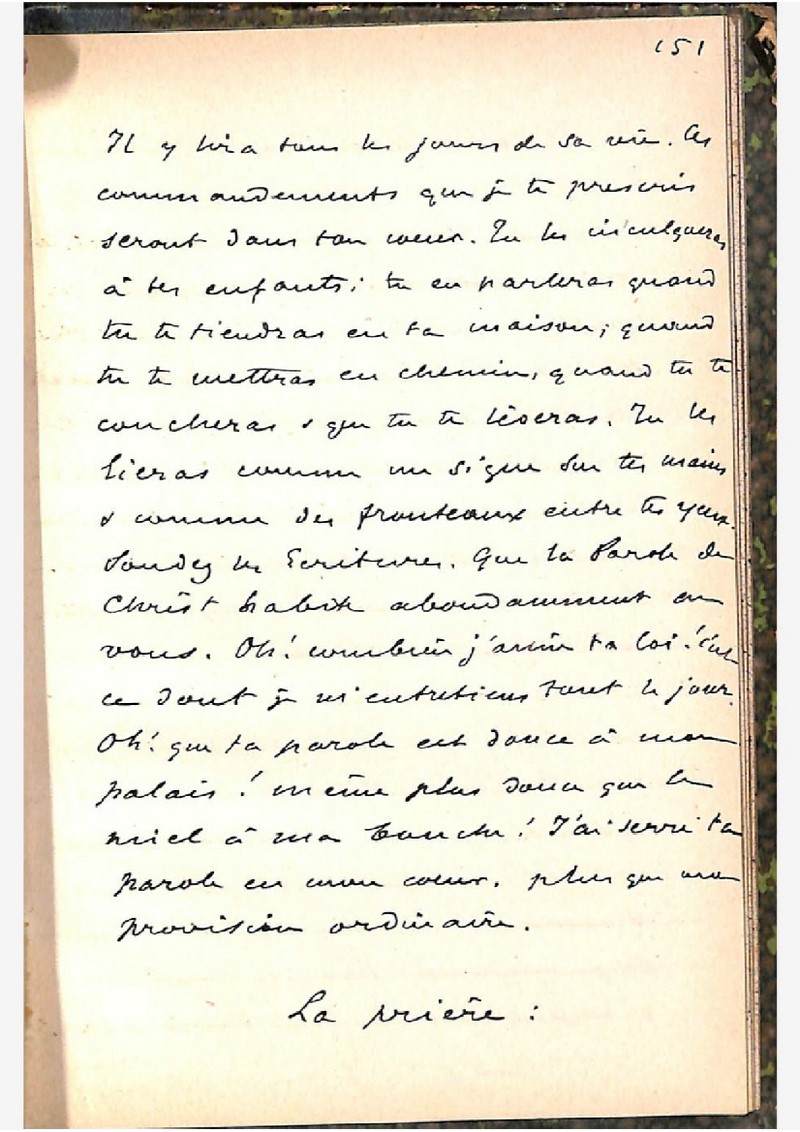 151
Il y lira tous les jours de sa vie. Ces
commandements que je te prescris
seront dans ton coeur. Tu les inculqueras
à tes enfants; tu en parleras quand
tu te tiendras en ta maison; quand
tu te mettras en chemin, quand tu te
coucheras & que tu te lèveras. Tu les
lieras comme un signe sur tes mains
& comme des fronteaux entre tes yeux.
Sondez les Ecritures. Que la Parole de
Christ habite abondamment en
vous. Oh! combien j'aime ta loi! c'est
ce dont je m'entretiens tout le jour.
Oh! que ta parole est douce à mon
palais! même plus douce que le
miel à ma bouche! J'ai serré ta
parole en mon coeur. plus que ma
provision ordinaire.
La prière :